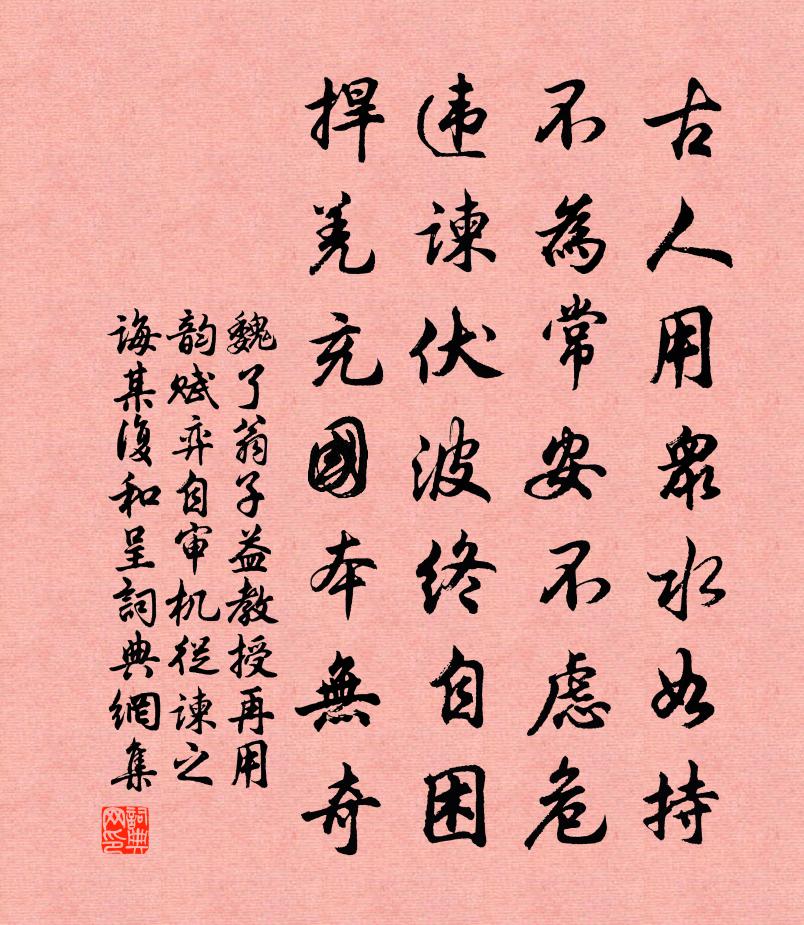 古人用衆水如持
不為常安不慮危
违諫伏波终自困
捍羌充國本無奇
魏了翁子益教授再用
韵赋弈自审机從諫之
诲某復和呈詞典網集
詞典网印